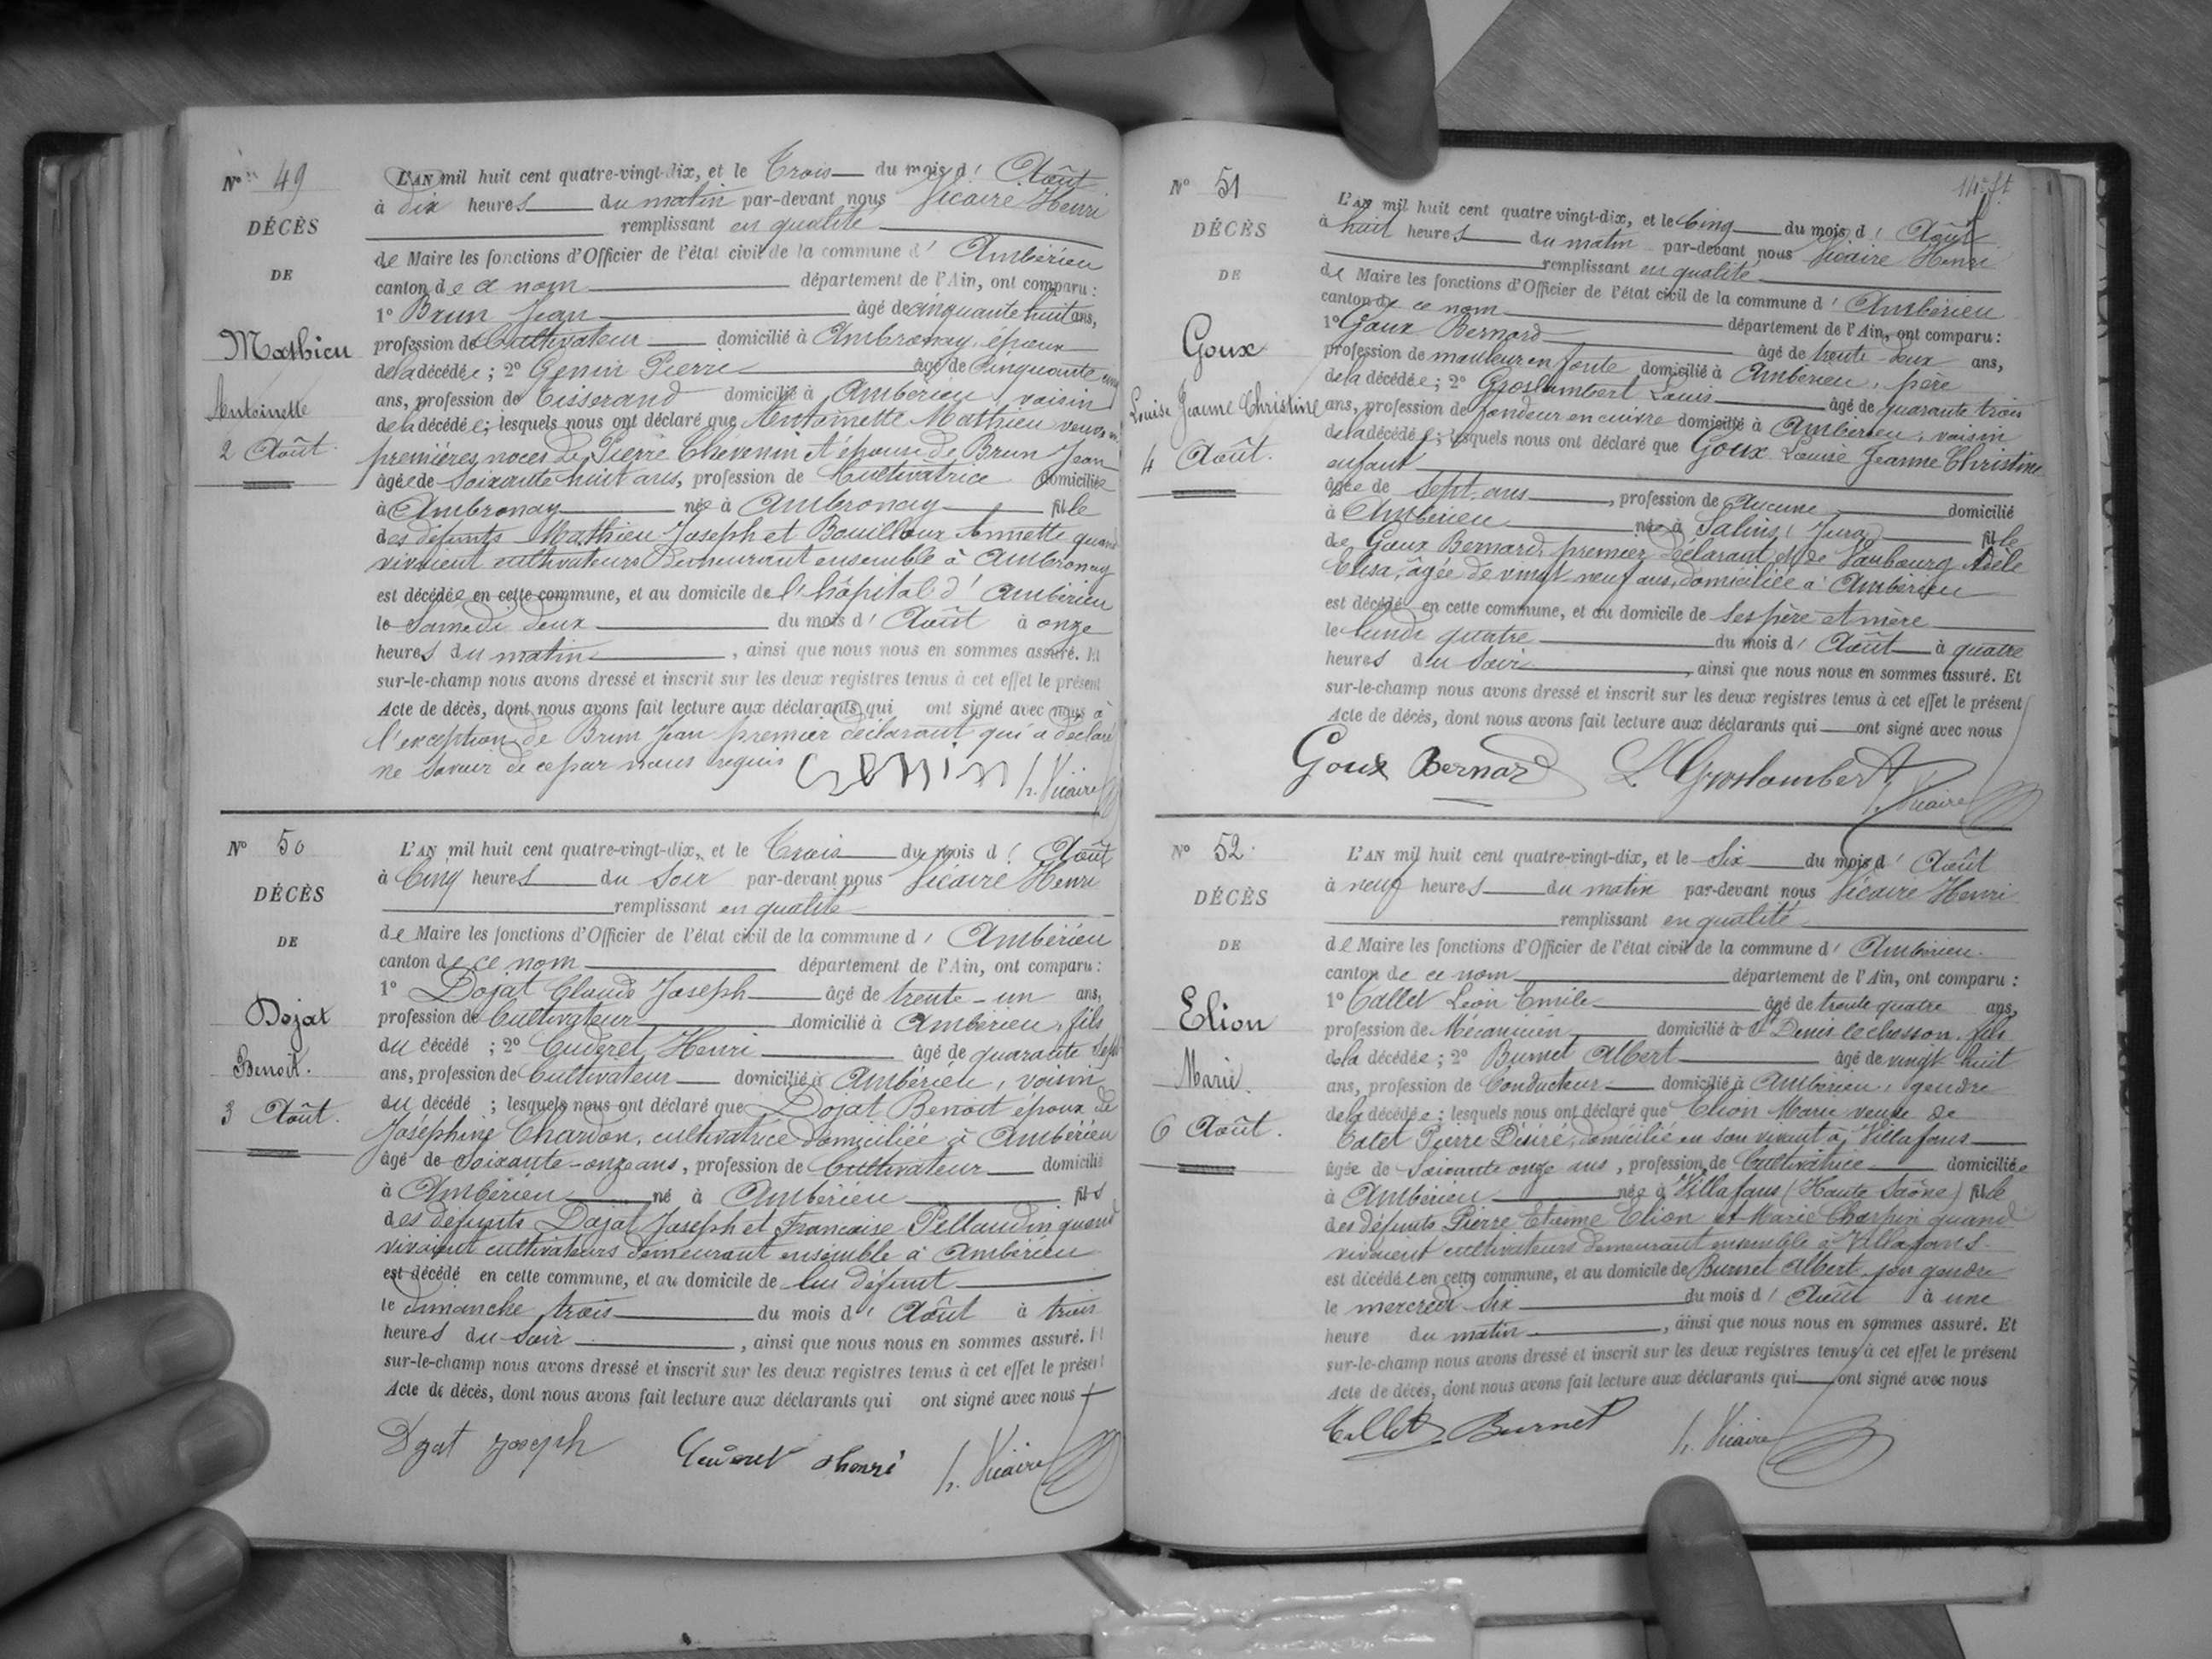 N° 49
DÉCÈS
DE
Mathieu
Antoinette
2 Août.
L'AN mil huit cent quatre-vingt-dix, et le Trois du mois d' Août
à dix heures du matin par-devant nous Vicaire Henri
remplissant en qualité
de Maire les fonctions d'Officier de l'état civil de la commune d' Ambérieu
canton de ce nom département de l'Ain, ont comparu :
1° Brun Jean âgé de cinquante huit ans,
profession de Cultivateur domicilié à Ambronay, époux
de la décédée ; 2° Genin Pierre âgé de Cinquante cinq
ans, profession de Tisserand domicilié à Ambérieu, voisin
de la décédée ; lesquels nous ont déclaré que Antoinette Mathieu veuve en
premières noces de Pierre Chevenin et épouse de Brun Jean
âgée de Soixante huit ans, profession de Cultivatrice domiciliée
à Ambronay née à Ambronay fille
des défunts Mathieu Joseph et Bouilloux Annette quand
vivaient cultivateurs demeurant ensemble à Ambronay
est décédée en cette commune, et au domicile de l'hôpital d' Ambérieu
le Samedi deux du mois d' Août à onze
heures du matin, ainsi que nous nous en sommes assuré. Et
sur-le-champ nous avons dressé et inscrit sur les deux registres tenus à cet effet le présent
Acte de décès, dont nous avons fait lecture aux déclarants qui ont signé avec nous à
l'exception de Brun Jean premier déclarant qui a déclaré
ne savoir de ce par nous requis Genin h. Vicaire
N° 50
DÉCÈS
DE
Dojat
Benoit.
3 Août.
L'AN mil huit cent quatre-vingt-dix, et le Trois du mois d' Août
à Cinq heures du Soir par-devant nous Vicaire Henri
remplissant en qualité
de Maire les fonctions d'Officier de l'état civil de la commune d' Ambérieu
canton de ce nom département de l'Ain, ont comparu :
1° Dojat Claude Joseph âgé de trente-un ans,
profession de Cultivateur domicilié à Ambérieu, fils
du décédé ; 2° Cuderet Henri âgé de quarante sept
ans, profession de Cultivateur domicilié à Ambérieu, voisin
du décédé ; lesquels nous ont déclaré que Dojat Benoit époux de
Joséphine Chardon, cultivatrice domiciliée à Ambérieu
âgé de Soixante-onze ans, profession de Cultivateur domicilié
à Ambérieu né à Ambérieu fils
des défunts Dojat Joseph et Françoise Pellaudin quand
vivaient cultivateurs demeurant ensemble à Ambérieu
est décédé en cette commune, et au domicile de lui défunt
le dimanche trois du mois d' Août à trois
heures du Soir, ainsi que nous nous en sommes assuré. Et
sur-le-champ nous avons dressé et inscrit sur les deux registres tenus à cet effet le présent
Acte de décès, dont nous avons fait lecture aux déclarants qui ont signé avec nous
Dojat Joseph Henri h. Vicaire
N° 51
DÉCÈS
DE
Goux
Louise Jeanne Christine
4 Août.
L'AN mil huit cent quatre vingt-dix, et le Cinq du mois d' Août
à huit heures du matin par-devant nous Vicaire Henri
remplissant en qualité
de Maire les fonctions d'Officier de l'état civil de la commune d' Ambérieu
canton de ce nom département de l'Ain, ont comparu :
1° Goux Bernard âgé de trente-deux ans,
profession de mouleur en fonte domicilié à Ambérieu, père
de la décédée ; 2° Groslambert Louis âgé de quarante trois
ans, profession de fondeur en cuivre domicilié à Ambérieu, voisin
de la décédée ; lesquels nous ont déclaré que Goux Louise Jeanne Christine
enfant
âgée de Sept ans, profession de Aucune domicilié
à Ambérieu née à Salins, Jura fille
de Goux Bernard premier déclarant et de Vaubourg Adèle
Elisa, âgée de vingt neuf ans, domiciliée à Ambérieu
est décédé en cette commune, et au domicile de ses père et mère
le lundi quatre du mois d' Août à quatre
heures du Soir, ainsi que nous nous en sommes assuré. Et
sur-le-champ nous avons dressé et inscrit sur les deux registres tenus à cet effet le présent
Acte de décès, dont nous avons fait lecture aux déclarants qui ont signé avec nous
Goux Bernard L Groslambert
h. Vicaire
N° 52.
DÉCÈS
DE
Elion
Marie.
6 Août.
L'AN mil huit cent quatre-vingt-dix, et le Six du mois d' Août
à neuf heures du matin par-devant nous Vicaire Henri
remplissant en qualité
de Maire les fonctions d'Officier de l'état civil de la commune d' Ambérieu.
canton de ce nom département de l'Ain, ont comparu :
1° Callet Léon Emile âgé de trente quatre ans,
profession de Mécanicien domicilié à St Denis le chosson, fils
de la décédée ; 2° Burnet Albert âgé de vingt huit
ans, profession de Conducteur domicilié à Ambérieu, gendre
de la décédée ; lesquels nous ont déclaré que Elion Marie veuve de
Pierre Désiré, domicilié en son vivant à Villafans
âgée de Soixante onze ans, profession de Cultivatrice domiciliée
à Ambérieu née à Villafans (Haute Saône) fille
des défunts Pierre Etienne Elion et Marie Charpin quand
vivaient cultivateurs demeurant ensemble à Villafans.
est décédée en cette commune, et au domicile de Burnet Albert son gendre
le mercredi six du mois d' Août à une
heure du matin, ainsi que nous nous en sommes assuré. Et
sur-le-champ nous avons dressé et inscrit sur les deux registres tenus à cet effet le présent
Acte de décès, dont nous avons fait lecture aux déclarants qui ont signé avec nous
Callet Burnet h. Vicaire